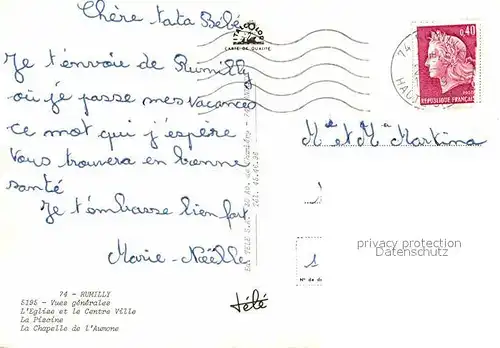 Chère tata Bélé
Je t'envoie de Rumilly
où je passe mes vacances
ce mot qui j'espère
Vous trouvera en bonne
santé
Je t'embrasse bien fort
Marie-Noëlle
CARTE DE QUALITÉ
0,40
REPUBLIQUE FRANÇAISE
74
HAU
Mr et Me Martina
privacy protection
www.delcampe.net
74 - RUMILLY
5195 - Vues générales
L'Eglise et le Centre Ville
La Piscine
La Chapelle de l'Aumone
télé